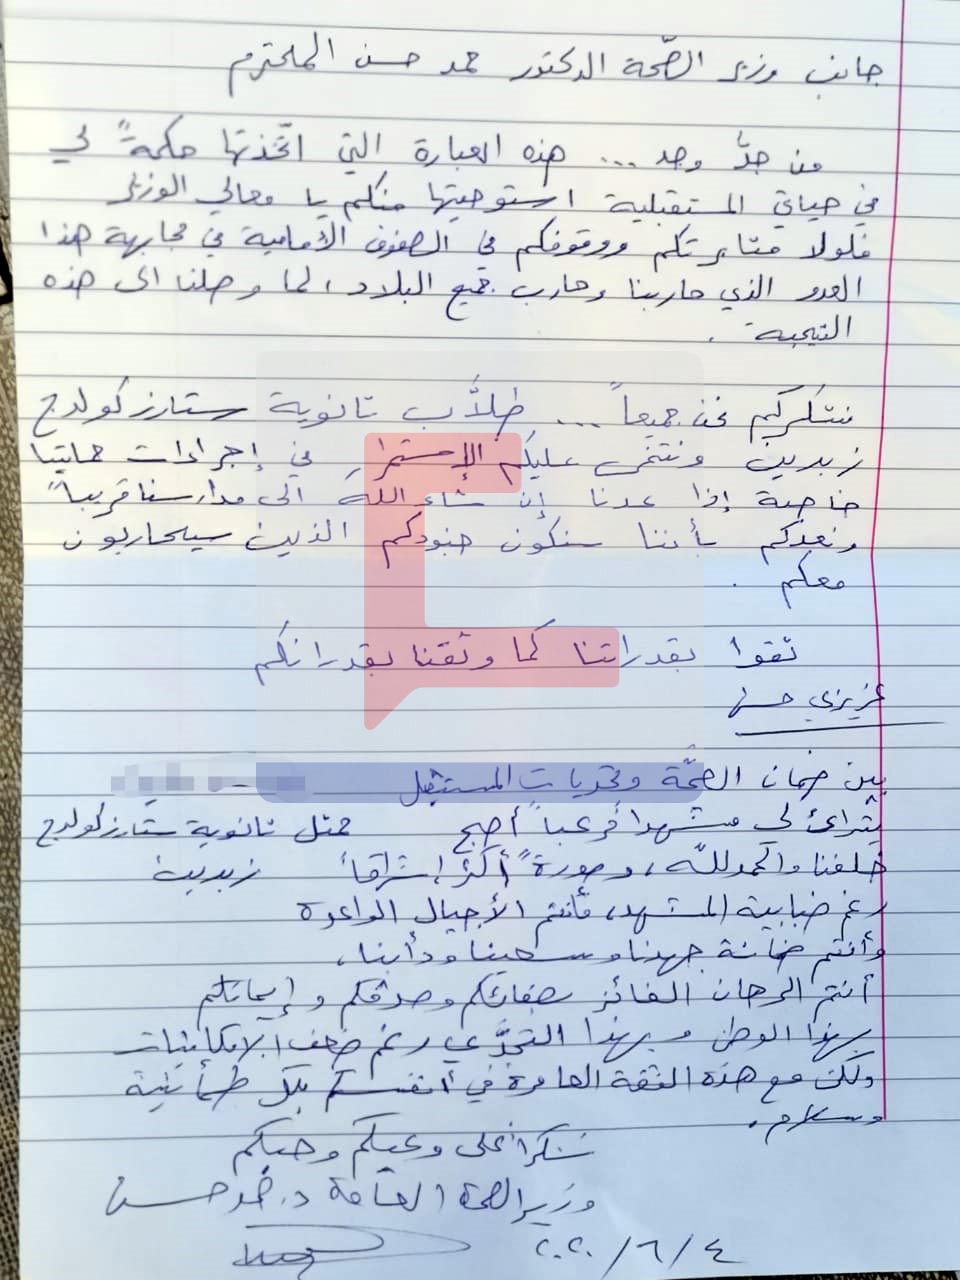 جانب وزير الصّحة الدكتور حمد حسن المحترم
من جدَّ وجد ... هذه العبارة التي اتّخذتها حكمةً لي
في حياتي المستقبلية استوحيتها منكم يا معالي الوزير
فلولا مثابرتكم ووقوفكم في الصفوف الأمامية في مجابهة هذا
العدو الذي حاربنا وحارب جميع البلاد، لما وصلنا الى هذه
النتيجة.
نشكركم نحن جميعاً ... طلّاب ثانوية ستارز كولدج
زبدين ونتمنى عليكم الإستمرار في إجراءات حمايتنا
خاصة إذا عدنا إن شاء الله الى مدارسنا قريباً
ونعدكم بأننا سنكون جنودكم الذين سيحاربون
معكم.
ثقوا بقدراتنا كما وثقنا بقدراتكم
عزيزي حسن
بين ضمان الصحّة وتحديات المستقبل
يتراءى لي مشهداً مرعباً أصبح
ممثل ثانوية ستارز كولدج
خلفنا والحمدلله، وصورةً أكثر إشراقاً
زبدين
رغم ضبابية المشهد، فأنتم الأجيال الواعدة
وأنتم ضمانة جهدنا وسعينا ودأبنا،
أنتم الرهان الفائز بصفائكم وصدقكم وإيمانكم
بهذا الوطن وبهذا التحدّي رغم ضعف الإمكانيات
ولكن مع هذه الثقة العامرة في أنفسكم بكل طمأنينة
وسلام.
شكراً على وعيكم وحبكم
وزير الصحة العامة د. حمد حسن
٤/٦/٢٠٢٠